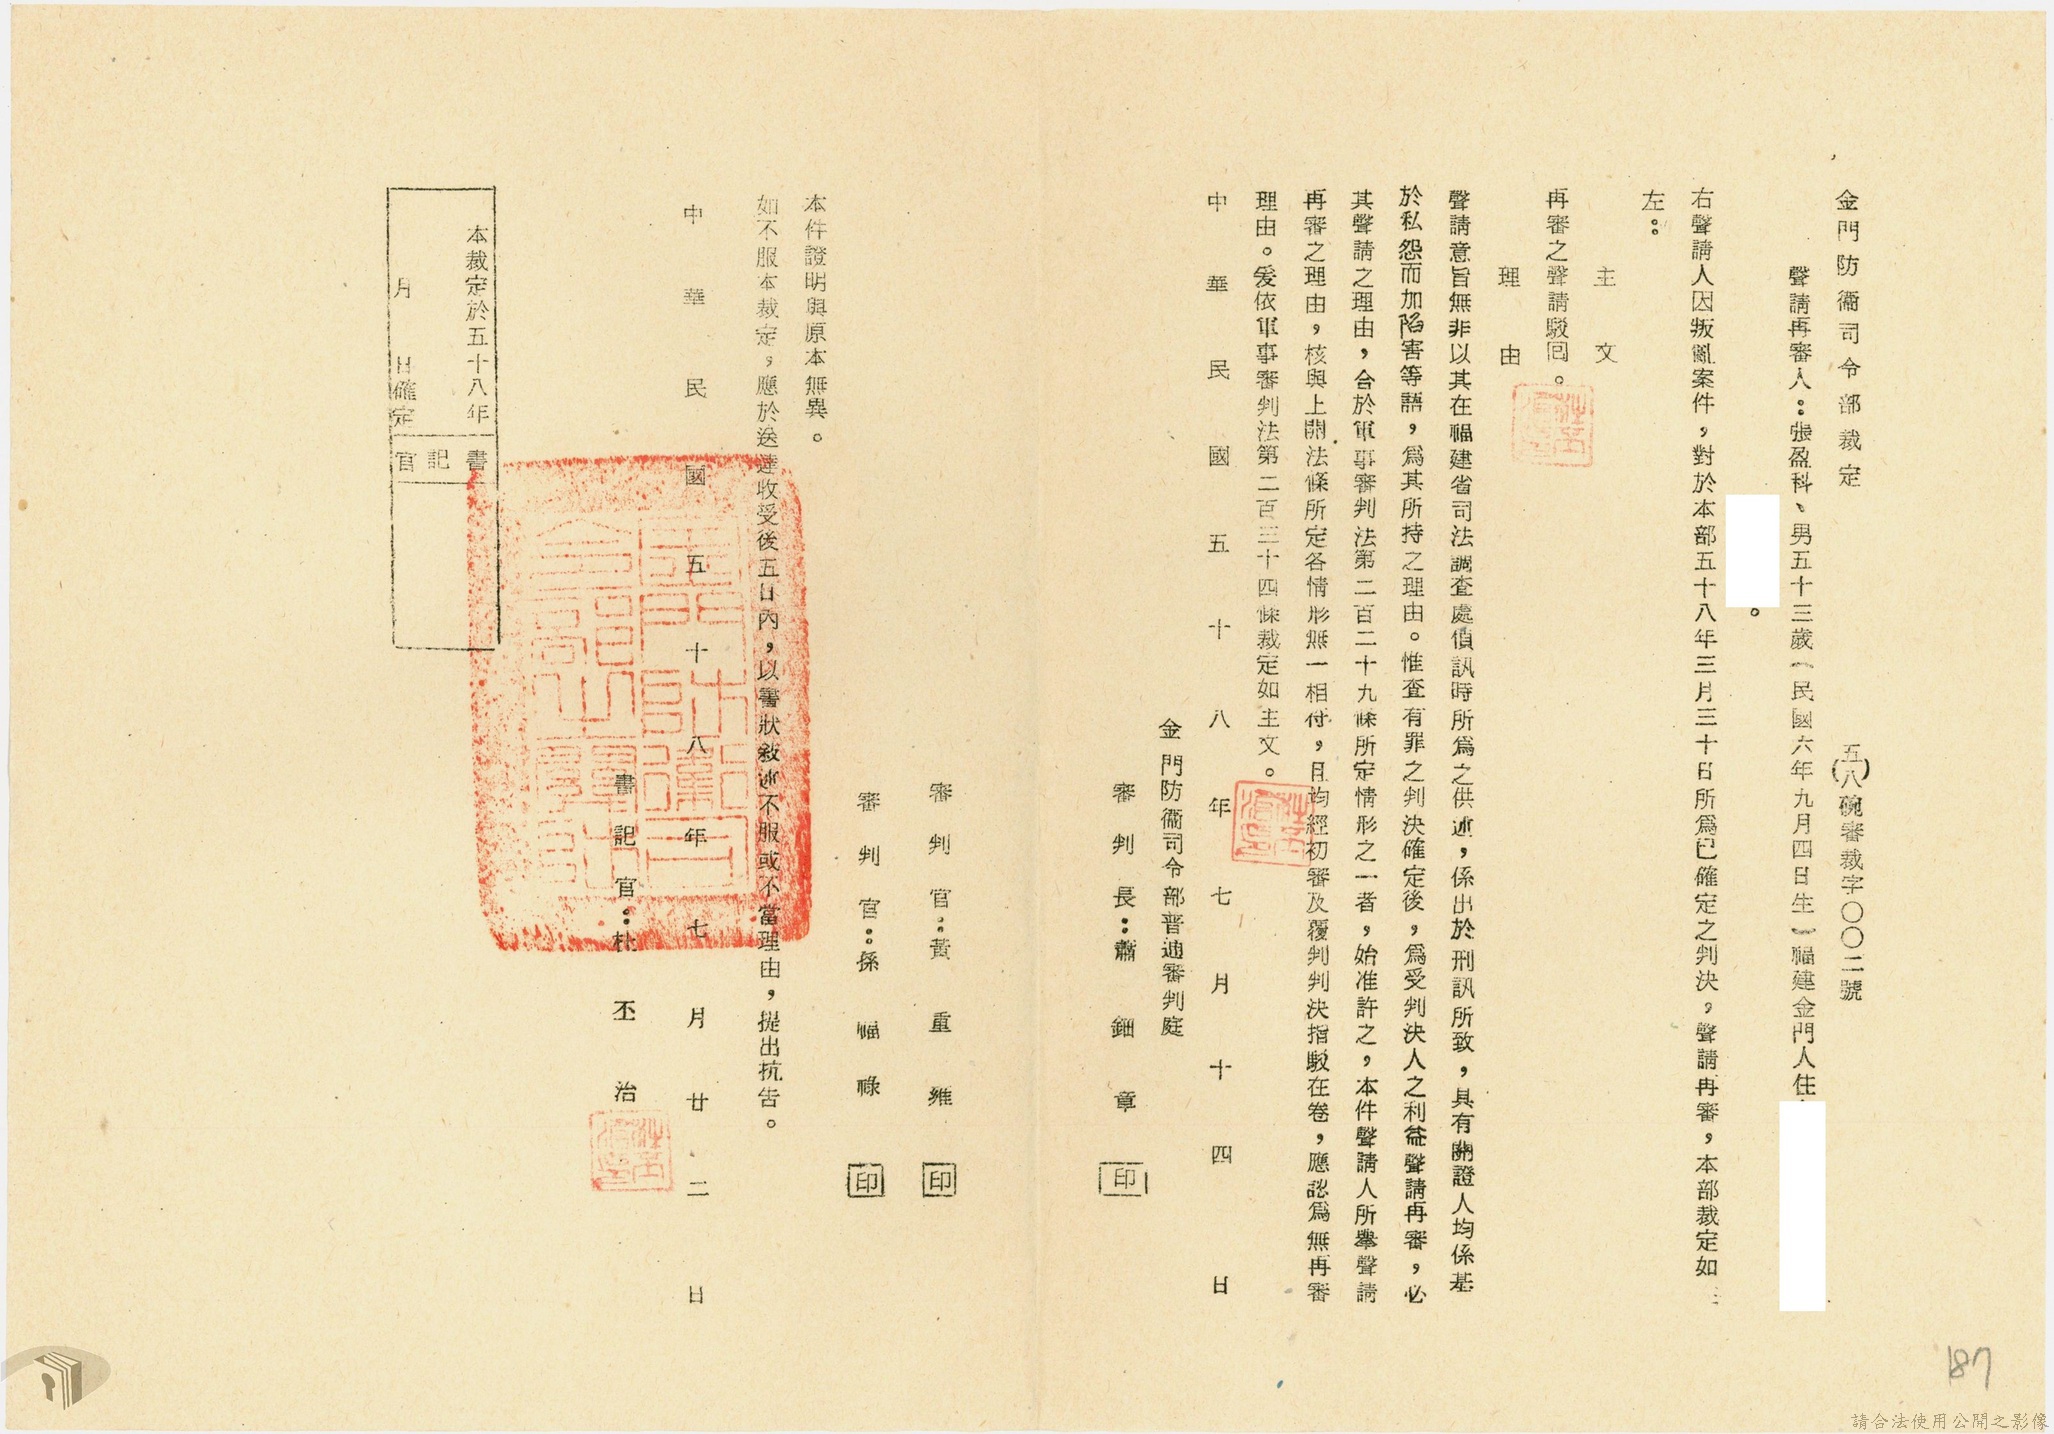 金門防衞司令部裁定
(五八)碗審裁字〇〇二號
聲請再審人：張盈科、男五十三歲（民國六年九月四日生）福建金門人住
。
右聲請人因叛亂案件，對於本部五十八年三月三十日所爲已確定之判決，聲請再審，本部裁定如
左：
主文
再審之聲請駁回。
理由
聲請意旨無非以其在福建省司法調查處偵訊時所爲之供述，係出於刑訊所致，具有關證人均係基
於私怨而加陷害等語，爲其所持之理由。惟查有罪之判決確定後，爲受判決人之利益聲請再審，必
其聲請之理由，合於軍事審判法第二百二十九條所定情形之一者，始准許之，本件聲請人所舉聲請
再審之理由，核與上開法條所定各情形無一相符，且均經初審及覆判判決指駁在卷，應認爲無再審
理由。爰依軍事審判法第二百三十四條裁定如主文。
中華民國五十八年七月十四日
金門防衞司令部普通審判庭
審判長：蕭鈿章 印
審判官：黃重維 印
審判官：孫福祿 印
本件證明與原本無異。
如不服本裁定，應於送達收受後五日內，以書狀敘述不服或不當理由，提出抗告。
中華民國五十八年七月廿二日
書記官：杜丕治
本裁定於五十八年
月 日確定
書記官
187
請合法使用公開之影像